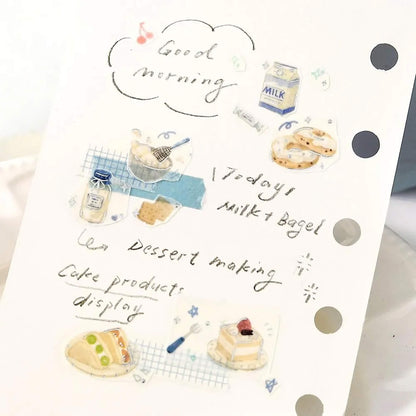 Good
morning
MILK
Today!
Milk + Bagel
Dessert making
Cake products
display